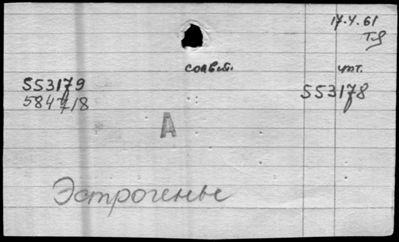 17.V.61
соавт.
чит.
553179
553178
584718
А
Эстрогены